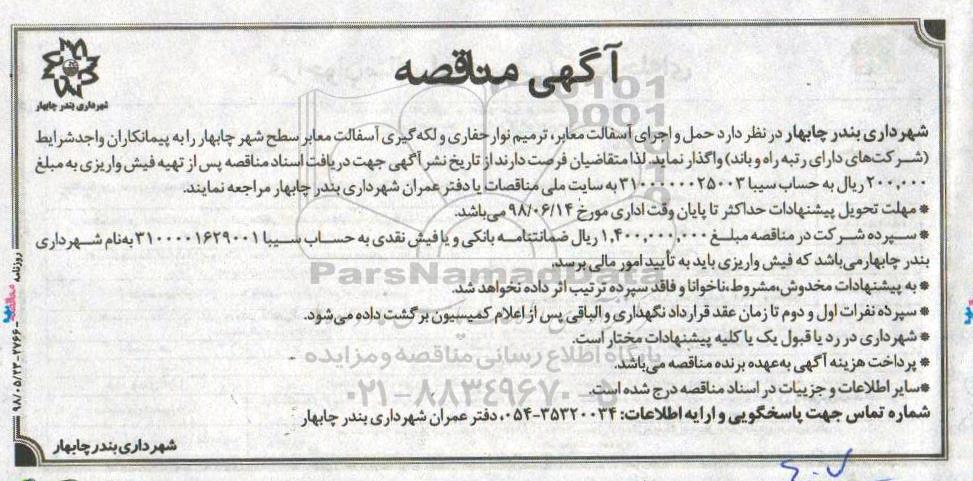 آگهی مناقصه
شهرداری بندر چابهار
شهرداری بندر چابهار در نظر دارد حمل و اجرای آسفالت معابر، ترمیم نوار حفاری و لکه گیری آسفالت معابر سطح شهر چابهار را به پیمانکاران واجدشرایط
(شرکت‌های دارای رتبه راه و باند) واگذار نماید. لذا متقاضیان فرصت دارند از تاریخ نشر آگهی جهت دریافت اسناد مناقصه پس از تهیه فیش واریزی به مبلغ
۲۰۰,۰۰۰ ریال به حساب سیبا ۳۱۰۰۰۰۰۰۲۵۰۰۳ به سایت ملی مناقصات یا دفتر عمران شهرداری بندر چابهار مراجعه نمایند.
* مهلت تحویل پیشنهادات حداکثر تا پایان وقت اداری مورخ ۹۸/۰۶/۱۴ می‌باشد.
* سپرده شرکت در مناقصه مبلغ ۱,۴۰۰,۰۰۰,۰۰۰ ریال ضمانتنامه بانکی و یا فیش نقدی به حساب سیبا ۳۱۰۰۰۰۱۶۲۹۰۰۱ به‌نام شهرداری
بندر چابهار می‌باشد که فیش واریزی باید به تأیید امور مالی برسد.
* به پیشنهادات مخدوش، مشروط، ناخوانا و فاقد سپرده ترتیب اثر داده نخواهد شد.
* سپرده نفرات اول و دوم تا زمان عقد قرارداد نگهداری و الباقی پس از اعلام کمیسیون برگشت داده می‌شود.
* شهرداری در رد یا قبول یک یا کلیه پیشنهادات مختار است.
* پرداخت هزینه آگهی به‌عهده برنده مناقصه می‌باشد.
*سایر اطلاعات و جزییات در اسناد مناقصه درج شده است.
شماره تماس جهت پاسخگویی و ارایه اطلاعات: ۳۵۳۲۰۰۳۴-۰۵۴، دفتر عمران شهرداری بندر چابهار
شهرداری بندر چابهار
ParsNamadData
پایگاه اطلاع رسانی مناقصه و مزایده
۰۲۱-۸۸۳۴۹۶۷۰-۵
روزنامه مناقصه - ۷۷۶۶ - ۹۸/۰۵/۲۳